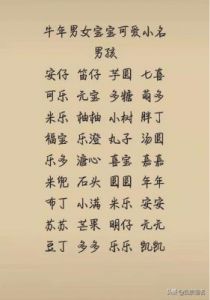 牛年男女宝宝可爱小名
男孩
安仔 笛仔 芋圆 七喜
可乐 元宝 多糖 萌多
米乐 柚柚 小树 豆子
福宝 乐澄 丸子 汤圆
乐多 溏心 喜宝 嘉嘉
米兜 石头 圆圆 年年
布丁 小满 米乐 安安
苏苏 芒果 明仔 元元
豆丁 多多 乐乐 凯凯